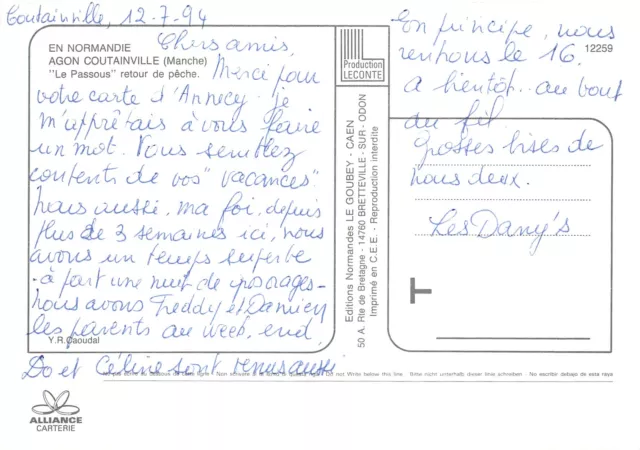 Coutainville, 12-7-94
EN NORMANDIE
AGON COUTAINVILLE (Manche)
"Le Passous" retour de pêche.
Chers amis,
Merci pour
votre carte d'Annecy. je
m'apprêtais à vous faire
un mot. Vous semblez
contents de vos "vacances"
nous aussi, ma foi, depuis
plus de 3 semaines ici, nous
avons un temps superbe
- à part une nuit de gros orages -
nous avons Freddy et Damien
les parents au week, end,
Y.R.Caoudal
Do et Céline sont venus aussi
ALLIANCE
CARTERIE
Production
LECONTE
Editions Normandes LE GOUBEY - CAEN
50 A. Rte de Bretagne - 14760 BRETTEVILLE - SUR - ODON
Imprimé en C.E.E. - Reproduction interdite
En principe, nous
rentrons le 16.
12259
A bientôt.. au bout
du fil
Grosses bises de
nous deux.
Les Dany's
T
Ne pas écrire au-dessous de cette ligne - Non scrivere sotto questa linea - Do not Write below this line - Bitte nicht unterhalb dieser linie schreiben - No escribir debajo de esta raya